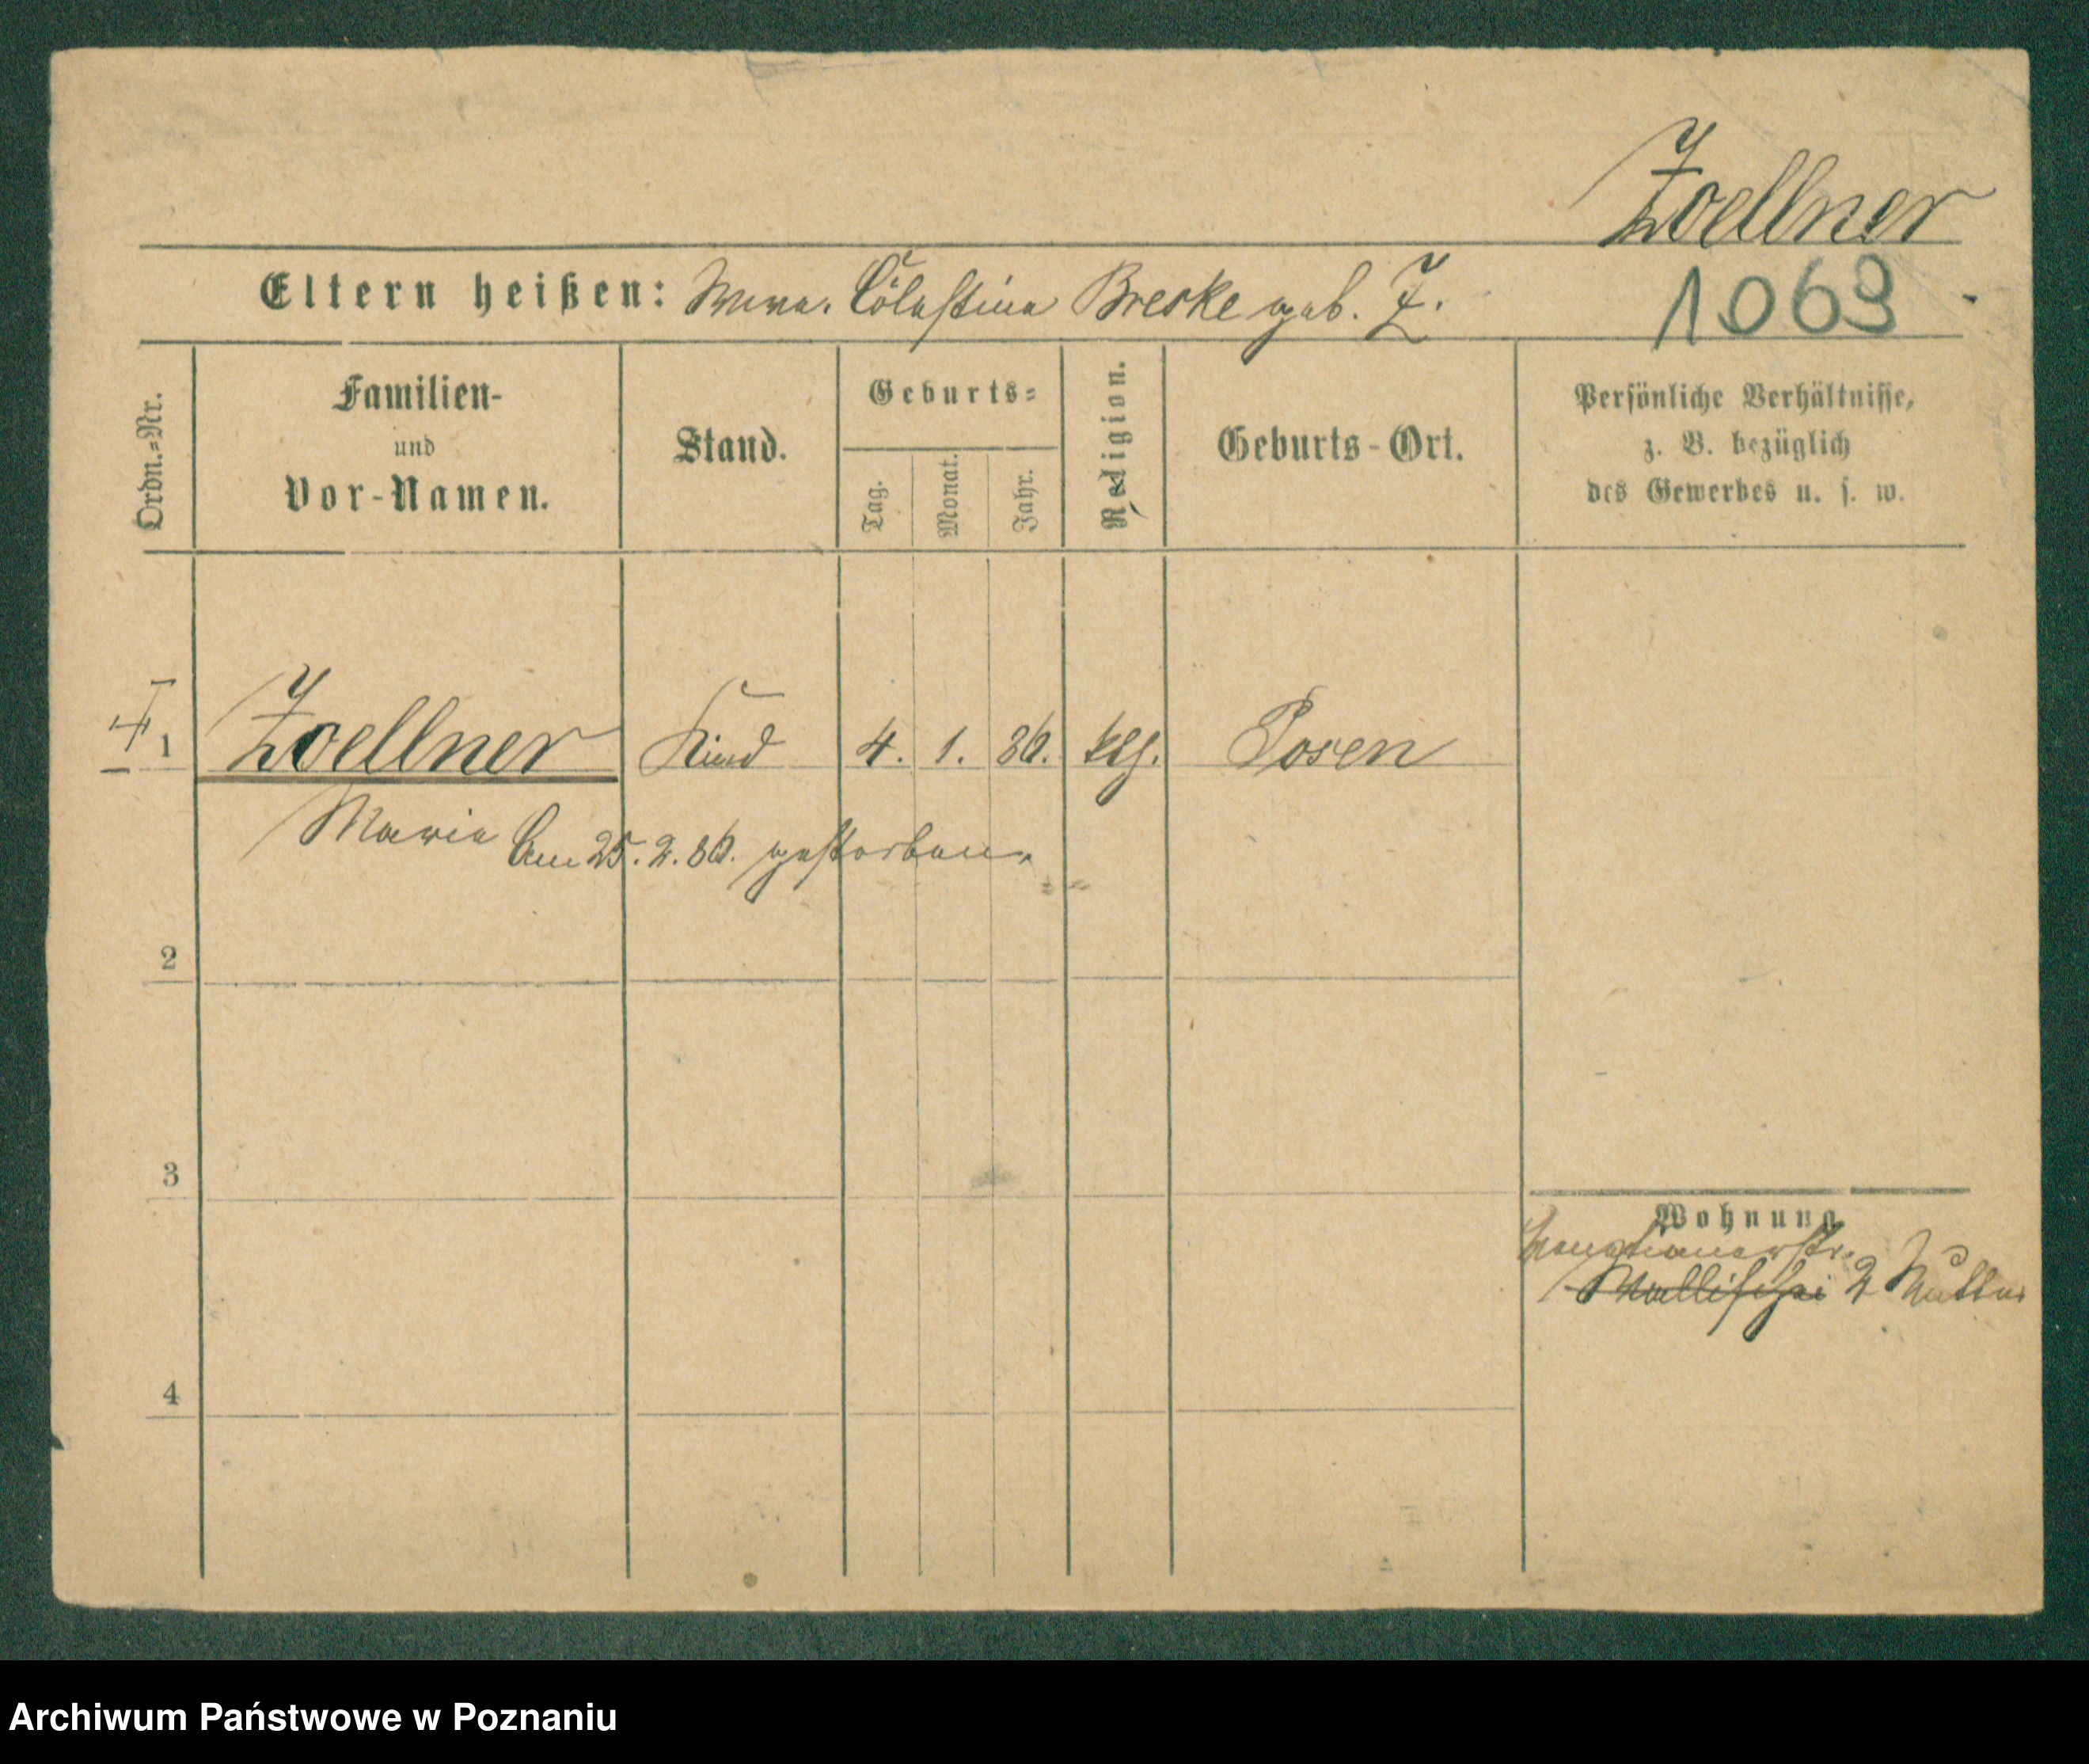 Zoellner
Eltern heißen: Wwe. Cölestine Breske geb. Z.
1069
Ordn.-Nr.
Familien-
und
Vor-Namen.
Stand.
Geburts-
Tag.
Monat.
Jahr.
Religion.
Geburts-Ort.
Persönliche Verhältnisse,
z. B. bezüglich
des Gewerbes u. s. w.
1 Zoellner Kind 4. 1. 86. klg. Posen
Marie Am 25. 2. 86. gestorben.
2
3
Wohnung
Wallischei 2 Mutter
4
Archiwum Państwowe w Poznaniu